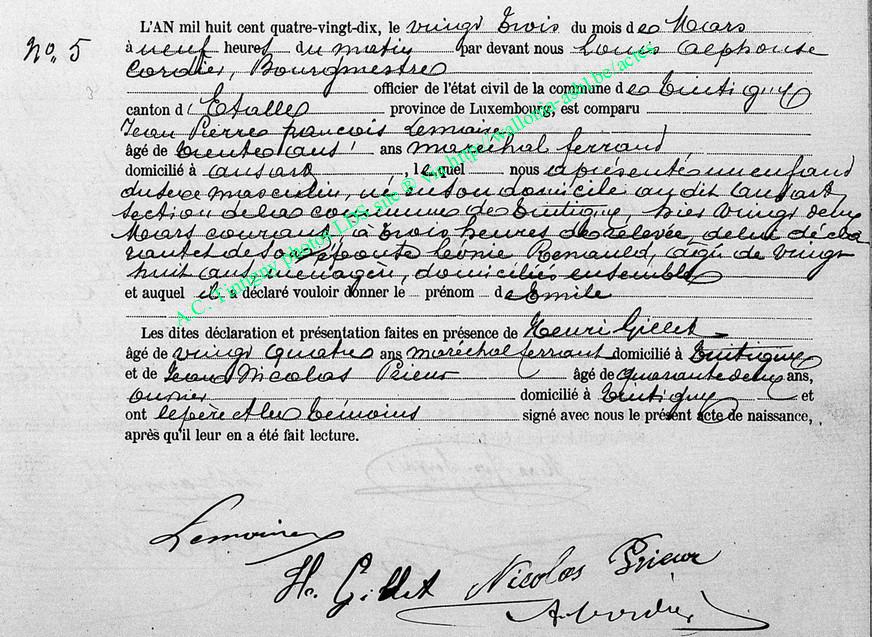 L'AN mil huit cent quatre-vingt-dix, le vingt trois du mois de Mars
No. 5
à neuf heures du matin par devant nous Louis Alphonse
Cordier, Bourgmestre
officier de l'état civil de la commune de Tintigny
canton d'Etalle province de Luxembourg, est comparu
Jean Pierre françois Lemoine
âgé de trente ans ans maréchal ferrand
domicilié à ansart, lequel nous a présenté un enfant
du sexe masculin, né en son domicile au dit ansart,
section de la commune de Tintigny, hier vingt deux
Mars courant, à trois heures de relevée, de lui décla
rant et de son épouse Léonie Renauld, âgée de vingt
huit ans, ménagère, domiciliés ensemble
et auquel il a déclaré vouloir donner le prénom d Emile
Les dites déclaration et présentation faites en présence de Henri Gillet
âgé de vingt quatre ans maréchal ferrant domicilié à Tintigny
et de Jean Nicolas Prieur âgé de quarante deux ans,
ouvrier domicilié à Tintigny et
ont le père et les témoins signé avec nous le présent acte de naissance,
après qu'il leur en a été fait lecture.
Lemoine
H. Gillet Nicolas Prieur
A. Cordier
A.C. Tintigny photos LDS site © via http://wallonia-asbl.be/actes